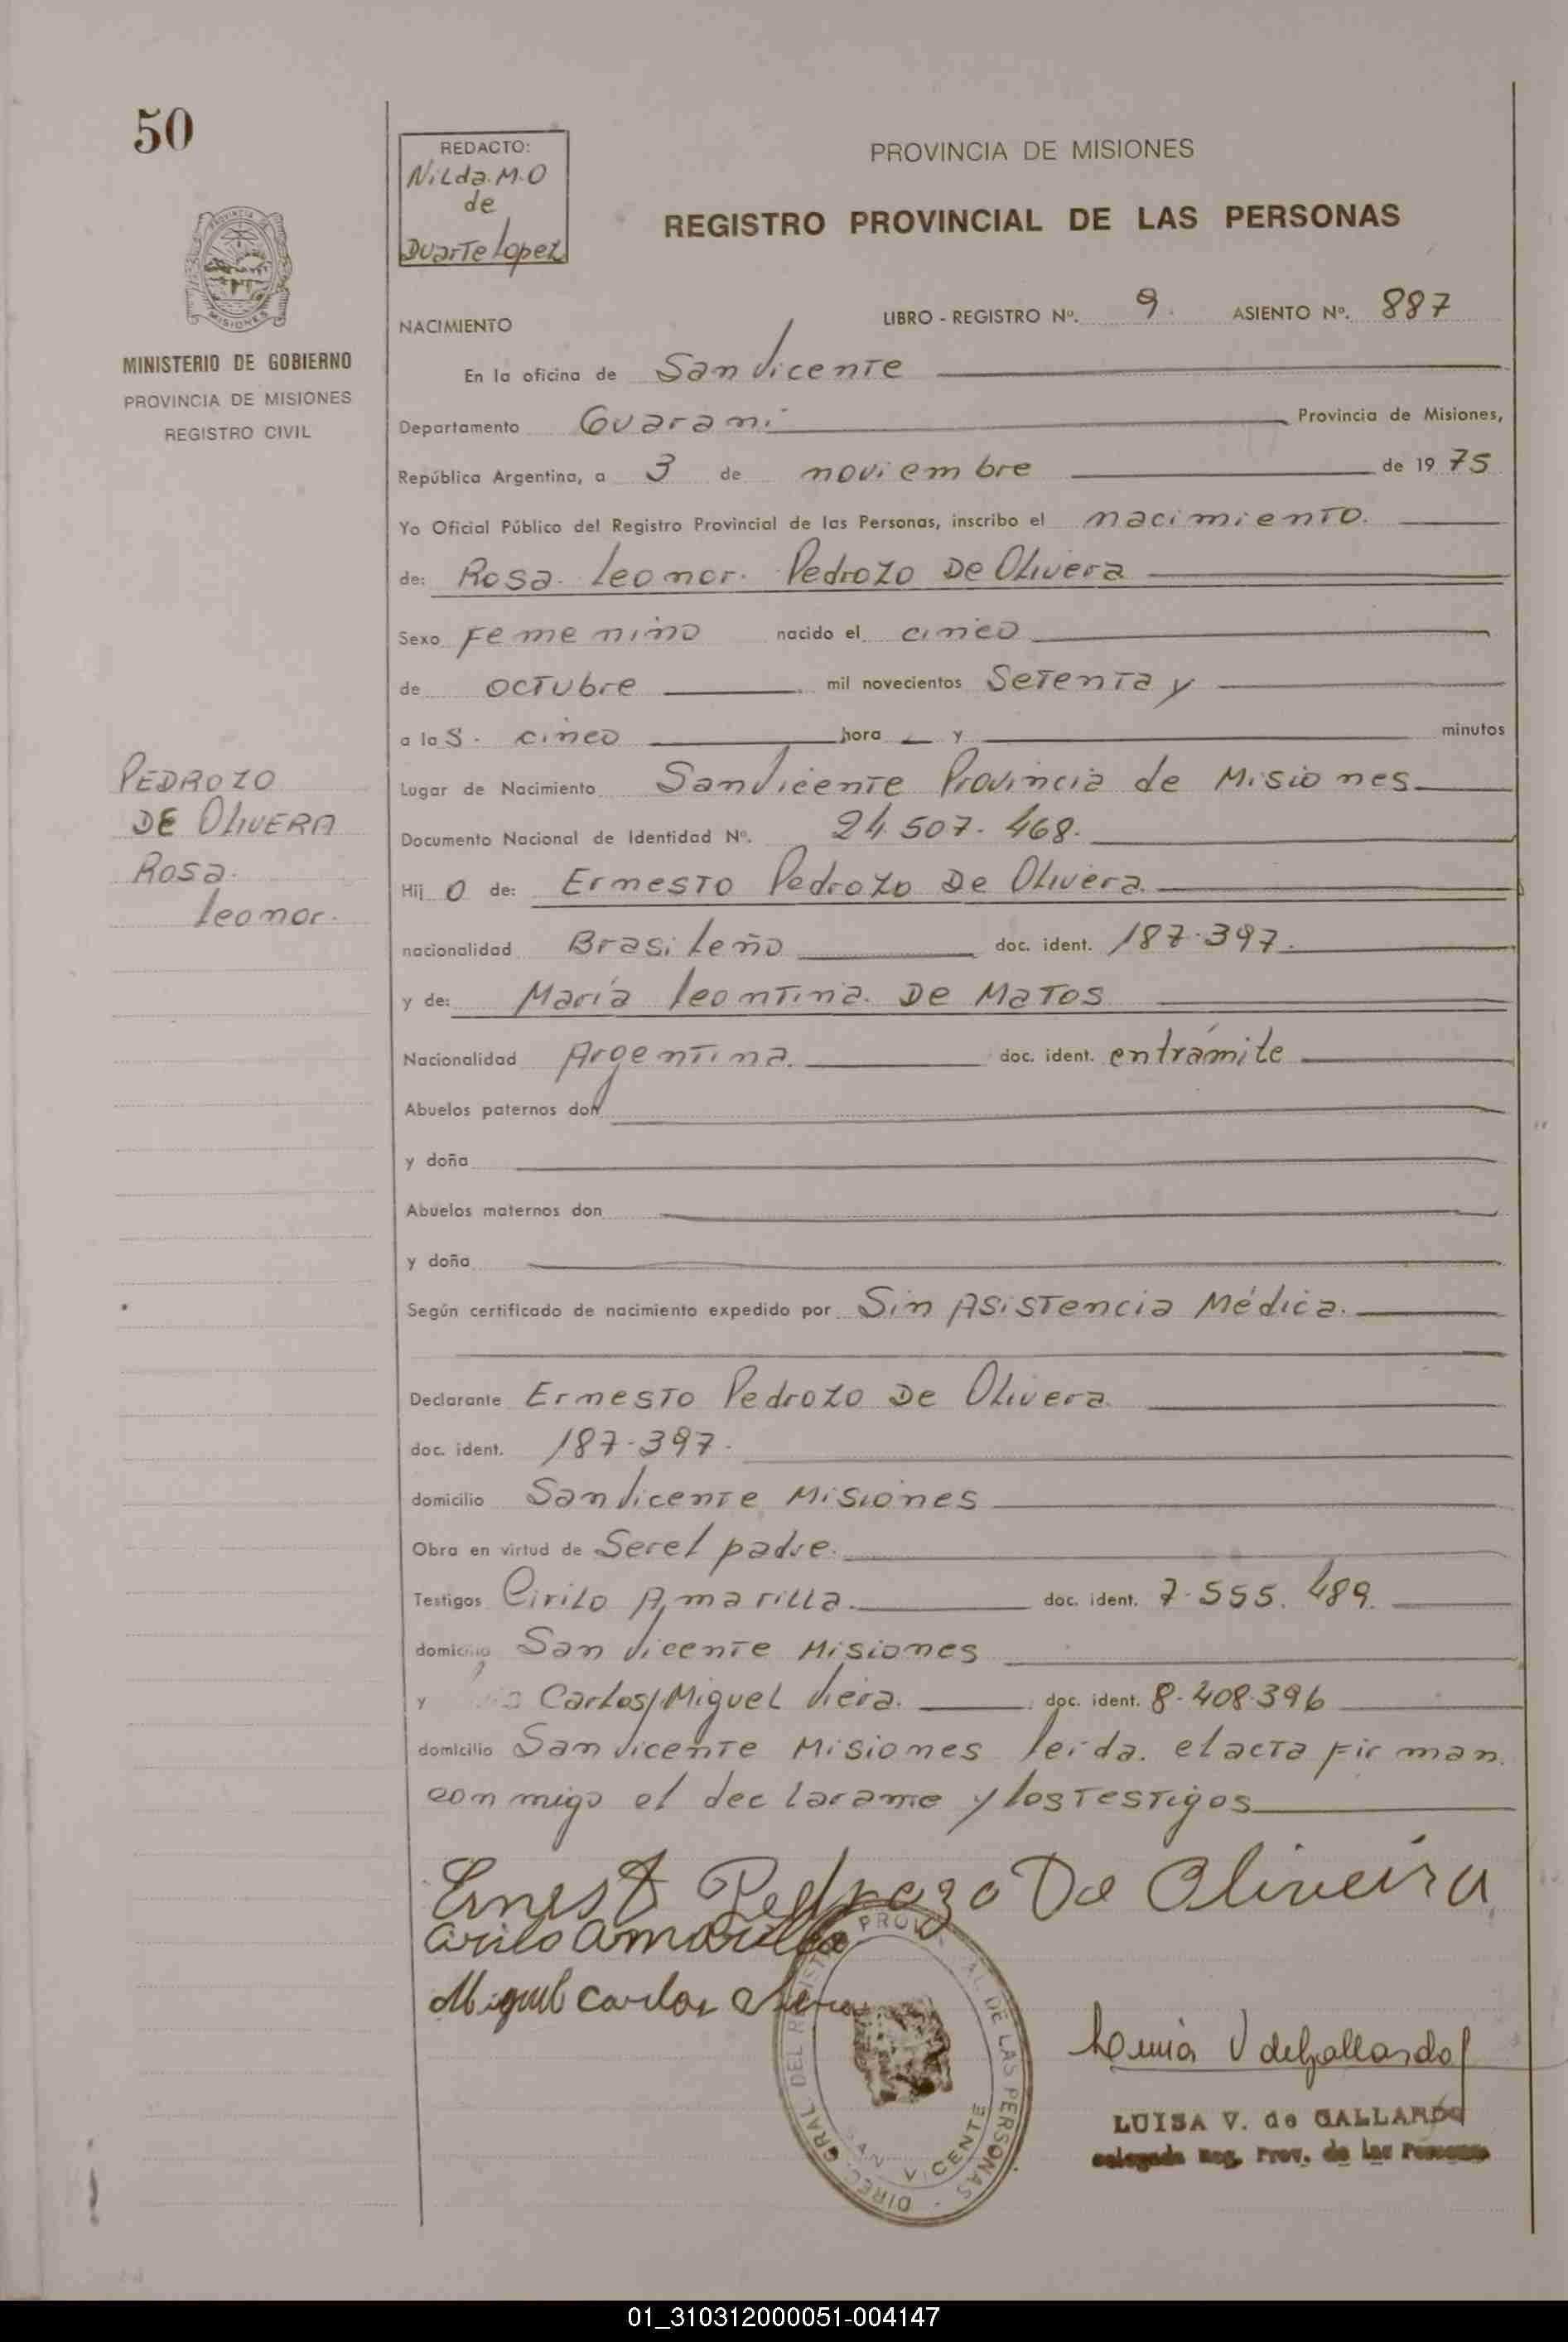 50
REDACTO:
Nilda. M.O
de
Duarte Lopez
PROVINCIA DE MISIONES
REGISTRO PROVINCIAL DE LAS PERSONAS
MISIONES
MINISTERIO DE GOBIERNO
PROVINCIA DE MISIONES
REGISTRO CIVIL
NACIMIENTO
LIBRO - REGISTRO Nº. 9. ASIENTO Nº. 887
En la oficina de San Vicente
Departamento Guarani Provincia de Misiones,
República Argentina, a 3 de noviembre de 19 75
Yo Oficial Público del Registro Provincial de las Personas, inscribo el nacimiento.
de: Rosa. Leonor. Pedrozo De Olivera
Sexo Femenino nacido el cinco
de octubre mil novecientos Setenta y
a las. cinco hora y minutos
Lugar de Nacimiento San Vicente Provincia de Misiones
Documento Nacional de Identidad Nº. 24.507.468.
Hijo de: Ernesto Pedrozo De Olivera.
nacionalidad Brasileño doc. ident. 187.397.
y de: María Leontina. De Matos
Nacionalidad Argentina. doc. ident. entrámite
Abuelos paternos don
y doña
Abuelos maternos don
y doña
Según certificado de nacimiento expedido por Sin Asistencia Médica.
Declarante Ernesto Pedrozo De Olivera.
doc. ident. 187-397.
domicilio San Vicente Misiones
Obra en virtud de Ser el padre.
Testigos Cirilo Amarilla. doc. ident. 7.555.489.
domicilio San Vicente Misiones
y Carlos/Miguel Viera. doc. ident. 8.408.396
domicilio San Vicente Misiones leída. el acta firman.
conmigo el declarante y los testigos
PEDROZO
DE OLIVERA
Rosa.
Leonor.
Ernesto Pedrozo De Oliveira
Cirilo Amarilla
Miguel Carlos Viera
DIREC. GRAL. DEL REGISTRO PROVINCIAL DE LAS PERSONAS
SAN VICENTE
Luisa V de Gallardo
LUISA V. de GALLARDO
Delegada Reg. Prov. de las Personas
01_310312000051-004147